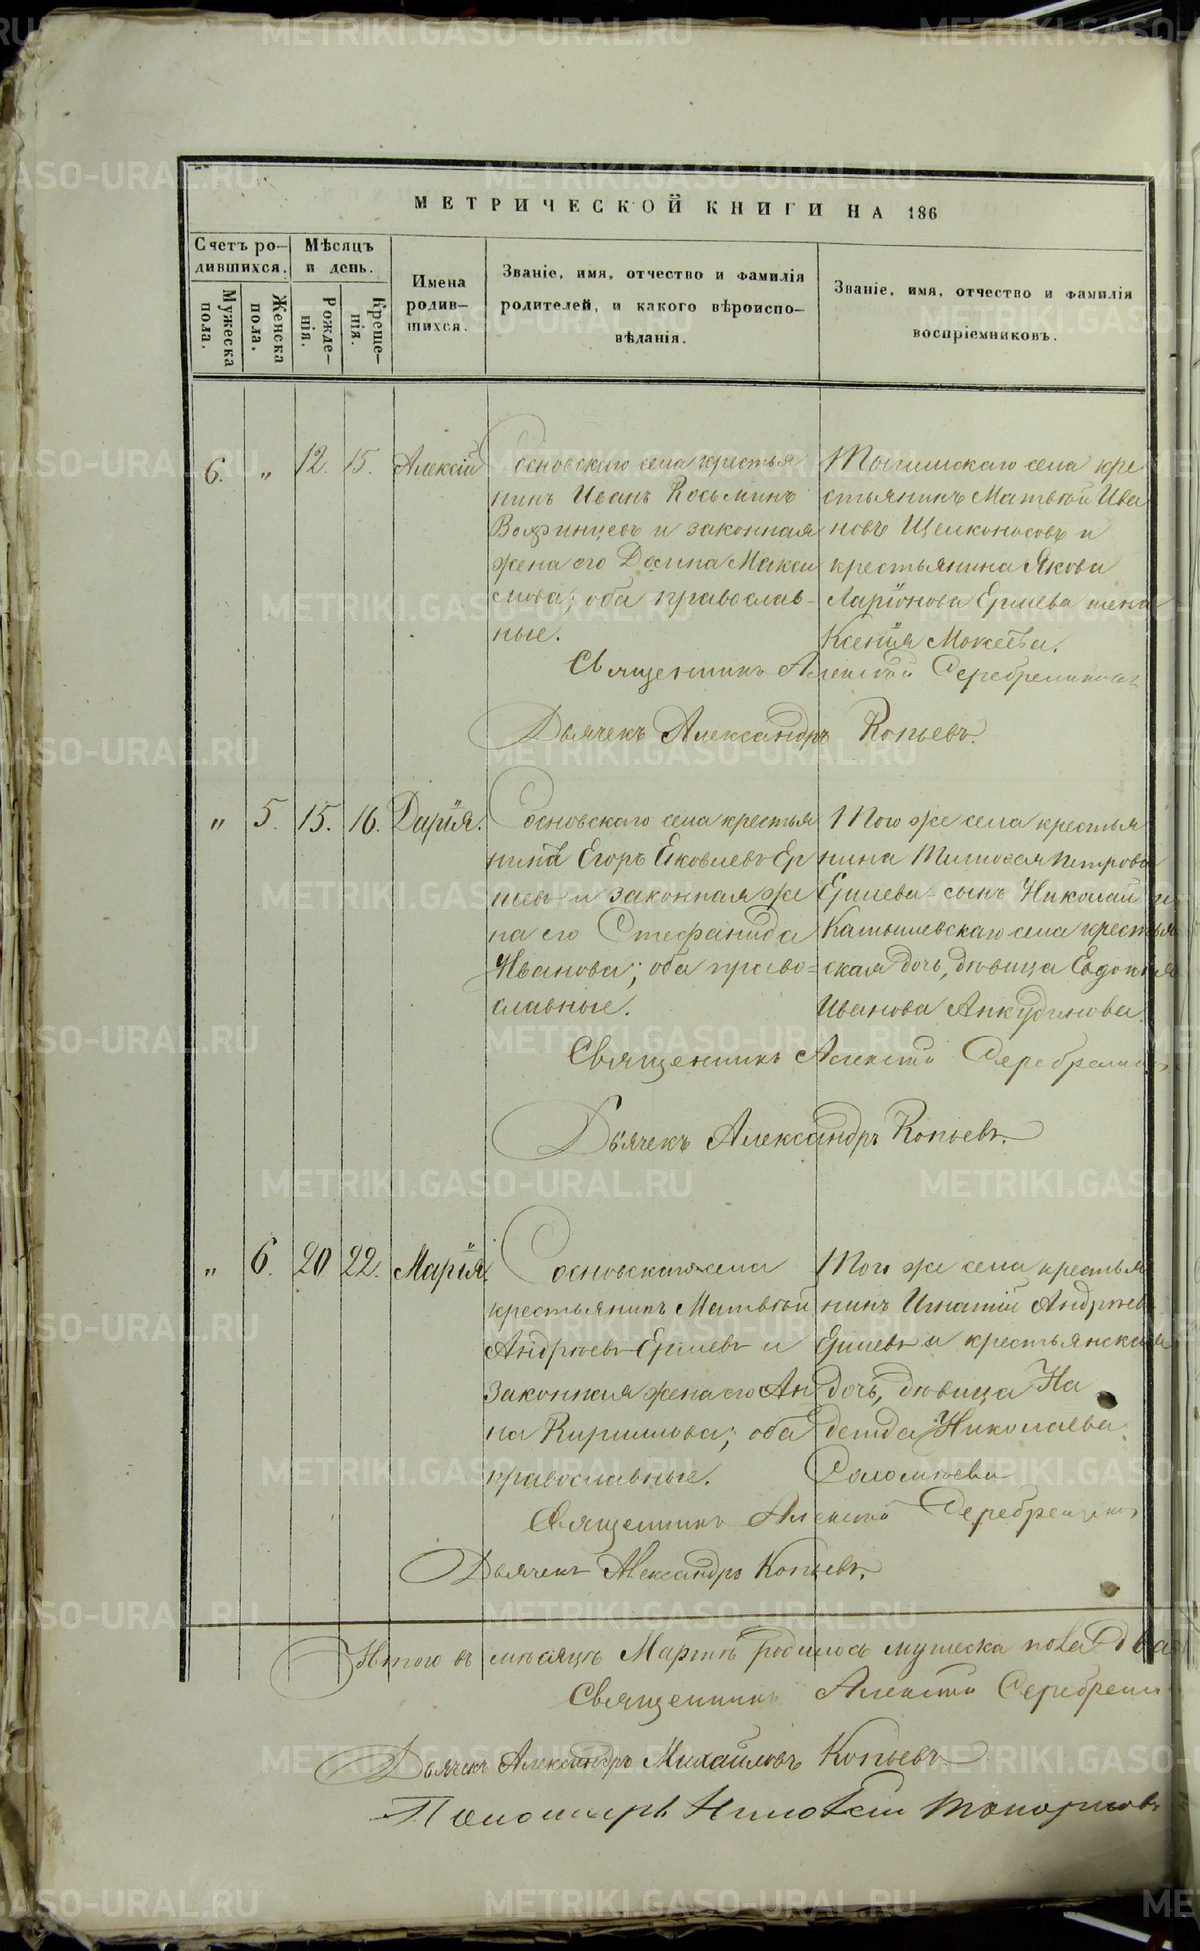 МЕТРИЧЕСКОЙ КНИГИ НА 186
Счетъ ро-
дившихся.
Мужеска пола.
Женска пола.
Мѣсяцъ
и день.
Рожде-
нія.
Креще-
нія.
Имена
родив-
шихся.
Званіе, имя, отчество и фамилія
родителей, и какого вѣроиспо-
вѣданія.
Званіе, имя, отчество и фамилія
воспріемниковъ.
6. „ 12. 15. Алексій
Сосновскаго села крестья
нинъ Иванъ Козьминъ
и законная
жена его Макси
мова; оба православ-
ные.
села кре
стьянинъ Матвѣй Ива
новъ Щелконоговъ и
крестьянина Якова
Ларіонова Ершева жена
Ксенія Мокеева.
Священникъ Алексѣй Серебренниковъ
Дьячекъ Александръ Копьевъ.
„ 5. 15. 16. Дарія.
Сосновскаго села крестья
нинъ Егоръ Яковлевъ Ер
шевъ и законная же
на его Стефанида
Иванова; оба право-
славные.
Того же села крестья
нина Тимофея Петрова
Ершева сынъ Николай и
Камышевскаго села крестья
ская дочь, дѣвица Евдокія
Иванова Анкудинова.
Священникъ Алексѣй Серебренник
Дьячекъ Александръ Копьевъ.
„ 6. 20. 22. Марія.
Сосновскаго села
крестьянинъ Матвѣй
Андреевъ Ершевъ и
законная жена его Ан
на Кирилова; оба
православные.
Того же села крестья
нинъ Игнатій Андреевъ
Ершевъ и крестьянская
дочь, дѣвица На
дежда Николаева
Соломѣева
Священникъ Алексѣй Серебренник
Дьячекъ Александръ Копьевъ.
Итого въ мѣсяцѣ Мартѣ родилось мужеска пола два
Священникъ Алексѣй Серебренни
Дьячекъ Александръ Михайловъ Копьевъ
Пономарь
METRIKI.GASO-URAL.RU